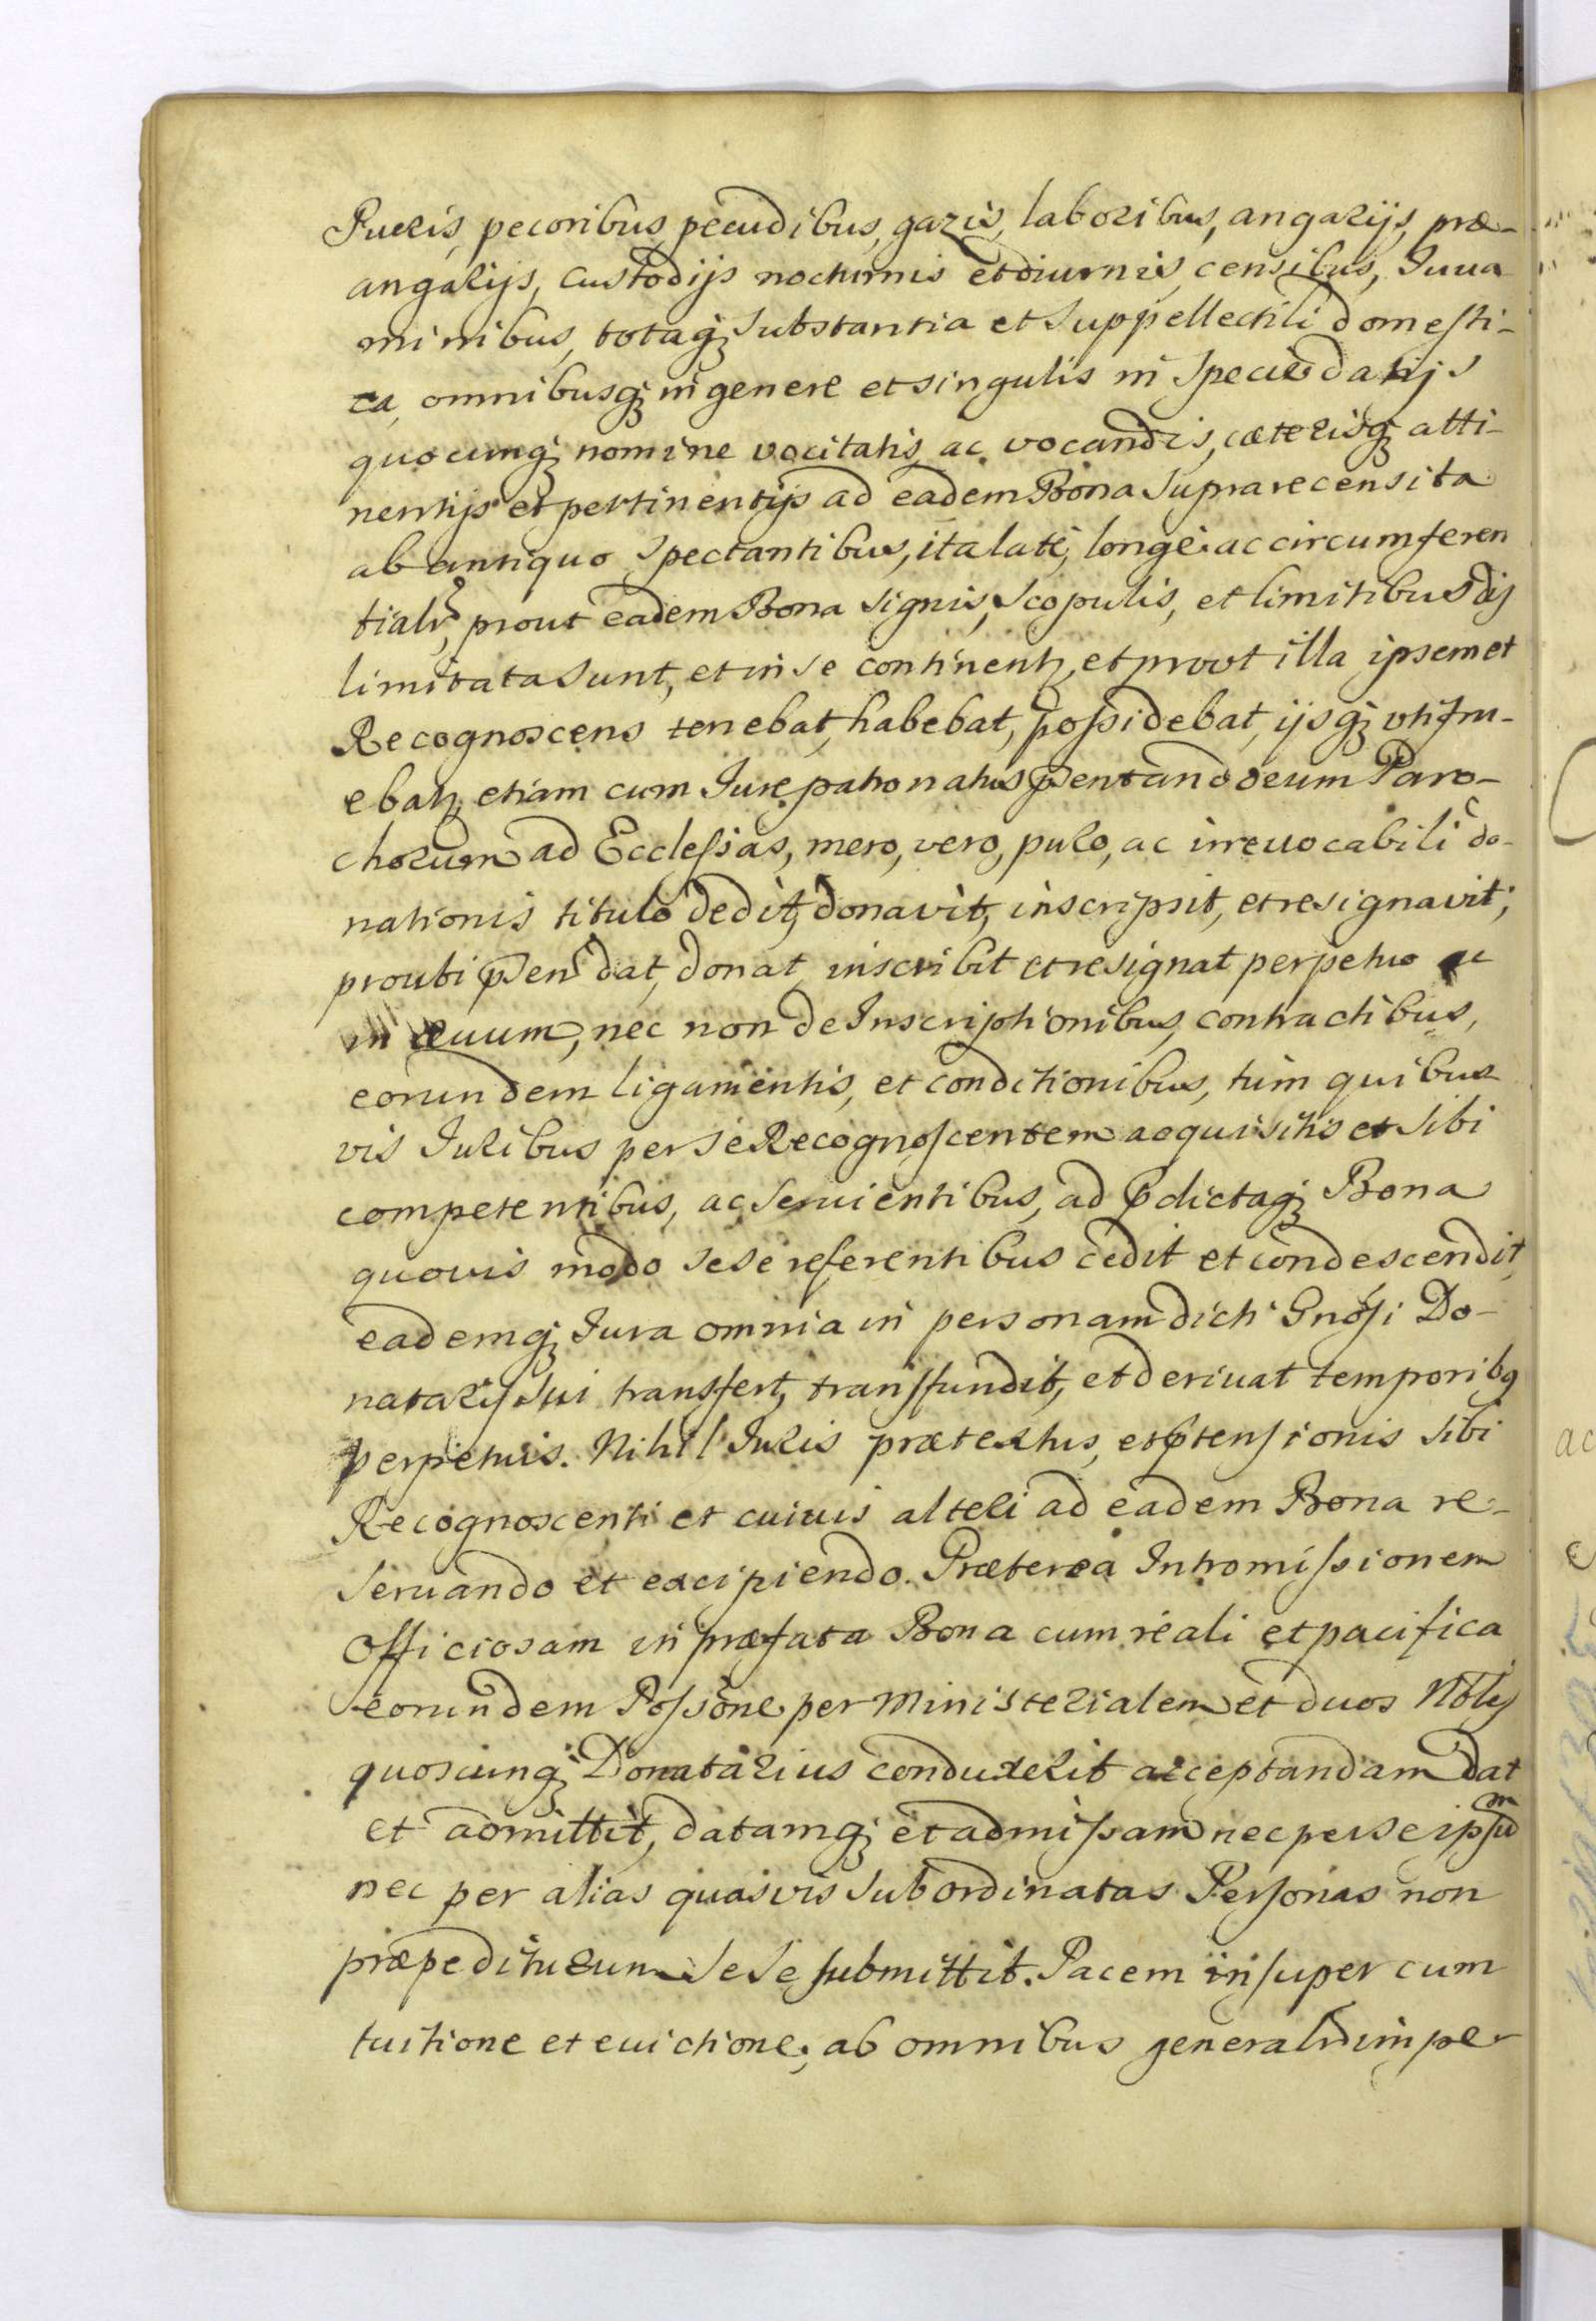 Pueris, pecoribus, pecudibus, gazis, laboribus, angarijs, præ-
angarijs, custodijs nocturnis et diurnis, censibus, Iuua
minibus, totaq; substantia et suppellectili domesti-
ca, omnibusq; in genere et singulis in specie datijs
quocunq; nomine vocitatis, ac vocandis, cæterisq; atti-
nentijs et pertinentijs ad eadem Bona supra recensita
ab antiquo spectantibus, ita late, longe, ac circumferen
tialr, prout eadem Bona signis, scopulis, et limitibus dis
limitata sunt, et in se continentz, et prout illa ipsemet
Recognoscens tenebat, habebat, possidebat, ijsq; utifru-
ebatz, etiam cum Iure patronatus pſentandorum Paro-
chorum ad Ecclesias, mero, vero, puro, ac irreuocabili do-
nationis titulo dedit, donavit, inscripsit, et resignavit;
prout ibi pſens dat, donat, inscribit et resignat perpetuo ac
in æuum, nec non de Inscriptionibus, contractibus,
eorundem ligamentis, et conditionibus, tùm quibus
vis Iuribus per se Recognoscentem acquisitis et sibi
competentibus, ac seruientibus, ad pdictaq; Bona
quovis modo sese referentibus cedit et condescendit,
eademq; Iura omnia in personam dicti Gnosi Do-
natarij sui transfert, transfundit, et deriuat temporibq
perpetuis. Nihil Iuris prætextus, et ptensionis sibi
Recognoscenti et cuiuis alteri ad eadem Bona re-
seruando et excipiendo. Præterea Intromissionem
Officiosam in præfata Bona cum reali et pacifica
eorundem Possone per Ministerialem et duos Nobles
quoscunq; Donatarius conduxerit acceptandam dat
et admittit, datamq; et admissam nec per se ipsum
nec per alias quasvis subordinatas Personas non
præpediturum sese submittit. Pacem insuper cum
tuitione et euictione, ab omnibus generalr impe